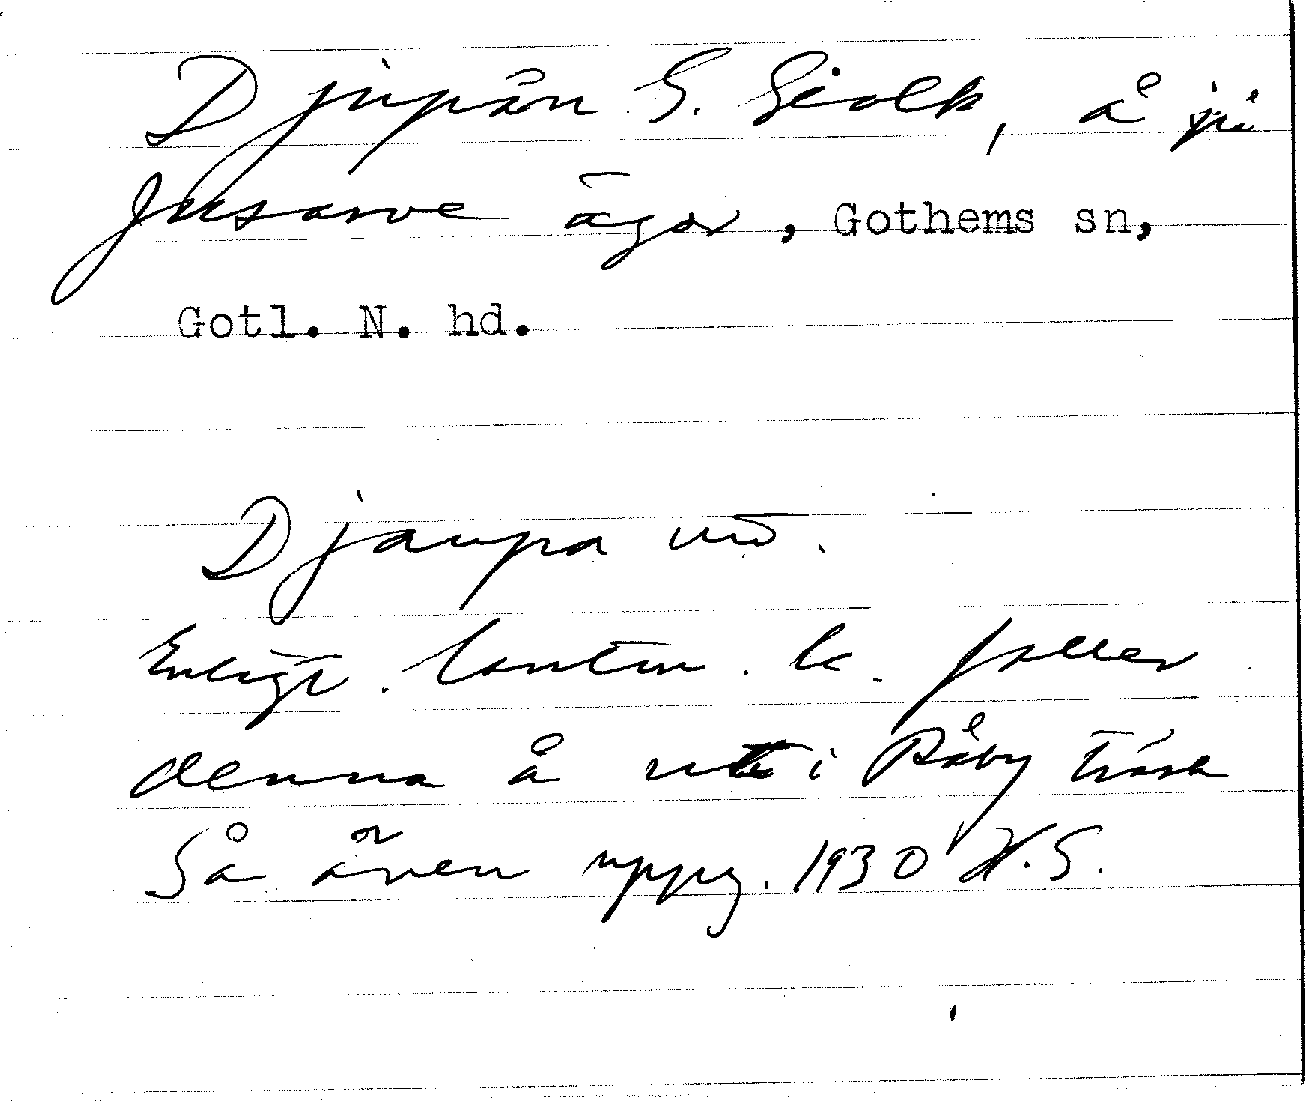 Djupån S. Geolk, å på
Jusarve ägor, Gothems sn,
Gotl. N. hd.
Djaupa
Enligt lantm. k. faller
denna å ut i Råby träsk
Så även uppg. 1930 H.S.